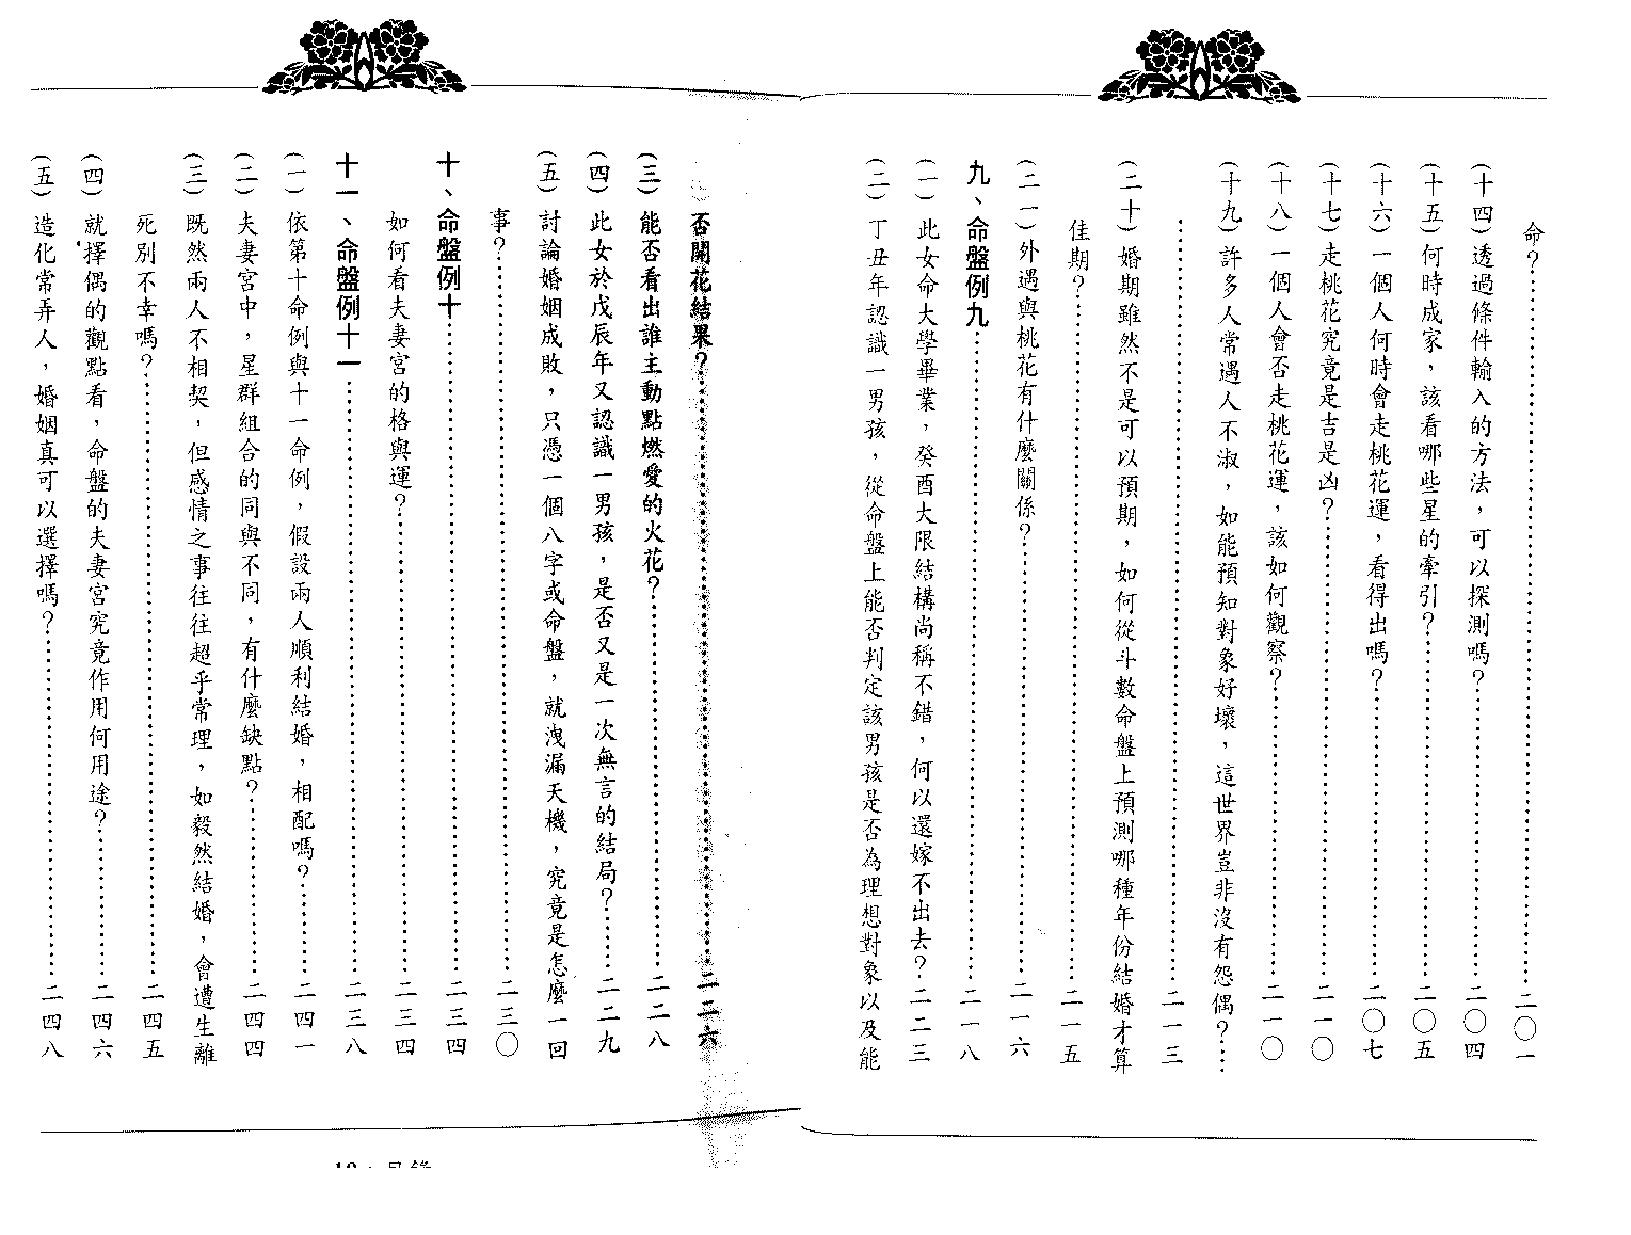 命?……二〇一
(十四)透過條件輸入的方法,可以探測嗎?……二〇四
(十五)何時成家,該看哪些星的牽引?……二〇五
(十六)一個人何時會走桃花運,看得出嗎?……二〇七
(十七)走桃花究竟是吉是凶?……二一〇
(十八)一個人會否走桃花運,該如何觀察?……二一〇
(十九)許多人常遇人不淑,如能預知對象好壞,這世界豈非沒有怨偶?…
……二一三
(二十)婚期雖然不是可以預期,如何從斗數命盤上預測哪種年份結婚才算
佳期?……二一五
(二一)外遇與桃花有什麼關係?……二一六
九、命盤例九……二一八
(一)此女命大學畢業,癸酉大限結構尚稱不錯,何以還嫁不出去?二二三
(二)丁丑年認識一男孩,從命盤上能否判定該男孩是否為理想對象以及能
否開花結果?……二二六
(三)能否看出誰主動點燃愛的火花?……二二八
(四)此女於戊辰年又認識一男孩,是否又是一次無言的結局?……二二九
(五)討論婚姻成敗,只憑一個八字或命盤,就洩漏天機,究竟是怎麼一回
事?……二三〇
十、命盤例十……二三四
如何看夫妻宮的格與運?……二三四
十一、命盤例十一……二三八
(一)依第十命例與十一命例,假設兩人順利結婚,相配嗎?……二四一
(二)夫妻宮中,星群組合的同與不同,有什麼缺點?……二四四
(三)既然兩人不相契,但感情之事往往超乎常理,如毅然結婚,會遭生離
死別不幸嗎?……二四五
(四)就擇偶的觀點看,命盤的夫妻宮究竟作用何用途?……二四六
(五)造化常弄人,婚姻真可以選擇嗎?……二四八